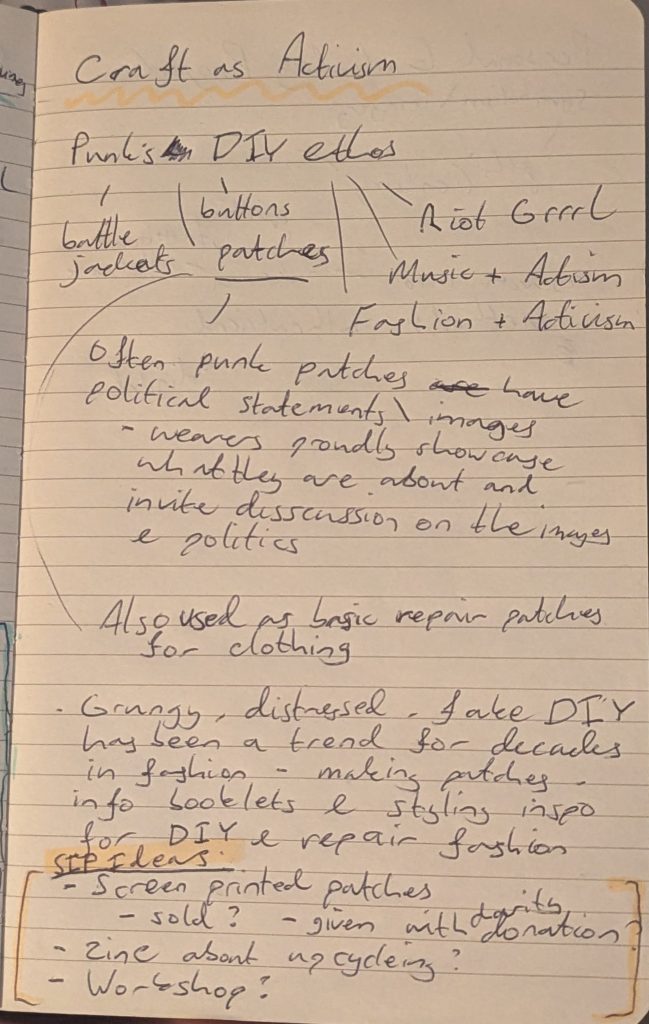 Craft as Activism
Punk's DIY ethos
battle
jackets
buttons
patches
Riot Grrrl
Music + Activism
Fashion + Activism
Often punk patches are have
political statements \ images
- wearers proudly showcase
what they are about and
invite disscussion on the images
& politics
Also used as basic repair patches
for clothing
. Grungy, distressed, fake DIY
has been a trend for decades
in fashion - making patches,
info booklets & styling inspo
for DIY & repair fashion
SIP Ideas:
- Screen printed patches
- sold? - given with charity donation?
- Zine about upcycleing?
- Workshop?